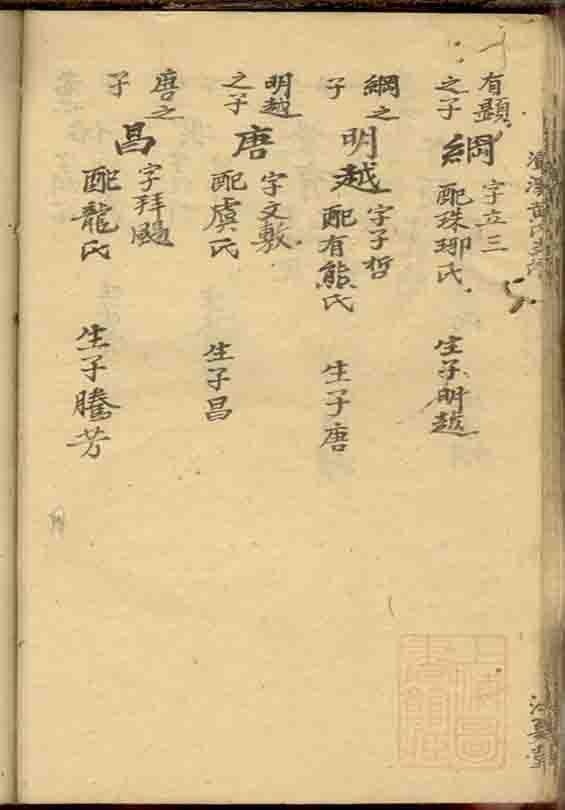 有顕之子
綱 字立三 配珠琊氏 生子明越
綱之子
明越 字子哲 配有熊氏 生子唐
明越之子
唐 字文敷 配虞氏 生子昌
唐之子
昌 字拜颺 配龍氏 生子騰芳